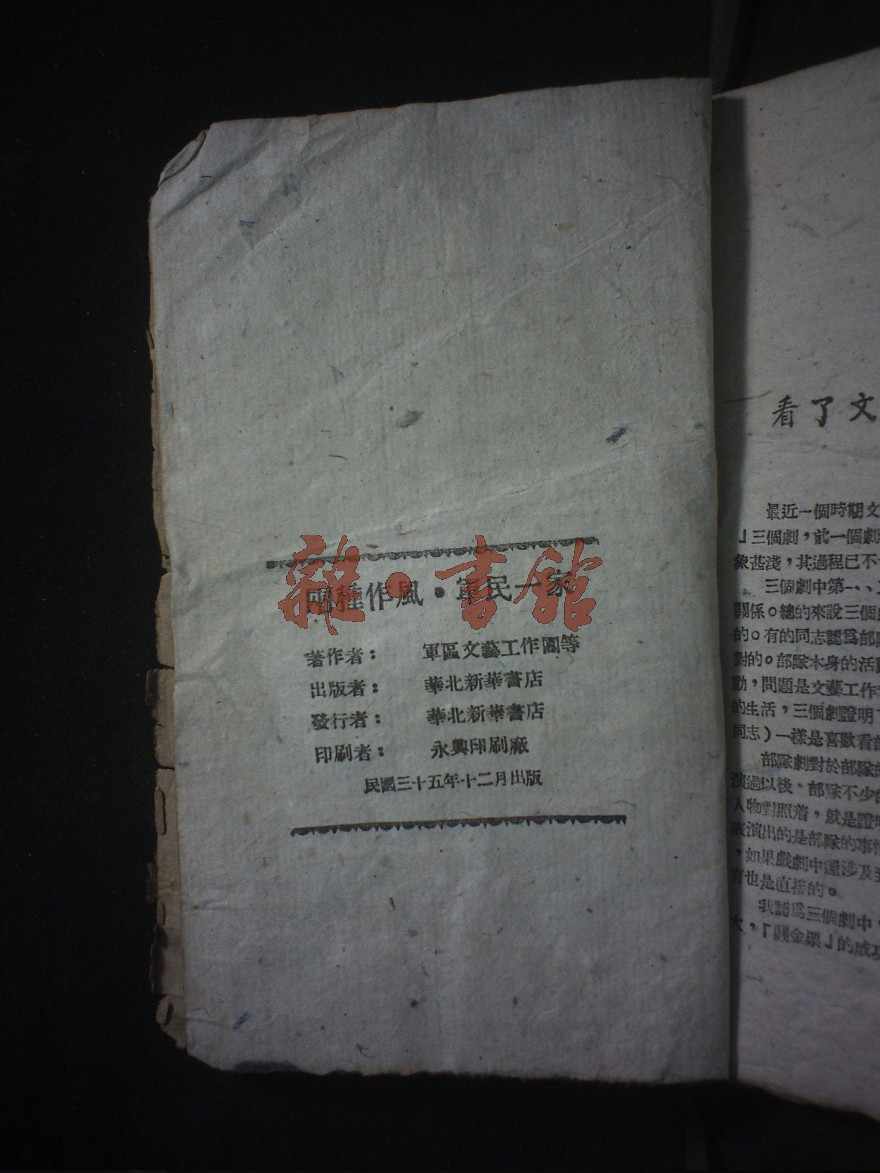 雜·書館
兩種作風·軍民一家
著作者：　軍區文藝工作團等
出版者：　華北新華書店
發行者：　華北新華書店
印刷者：　永興印刷廠
民國三十五年十二月出版
看了文
最近一個時期文
」三個劇，前一個劇
象甚淺，其過程已不
三個劇中第一、
關係。總的來說三個
的。有的同志認爲部
對的。部隊本身的活
動，問題是文藝工作
的生活，三個劇證明
同志）一樣是喜歡看
部隊劇對於部隊的
演過以後，部隊不少的
人物對照着，就是證明
演出的是部隊的事情
，如果戲劇中還涉及到
也是直接的。
我認爲三個劇中，
大，「 的成功